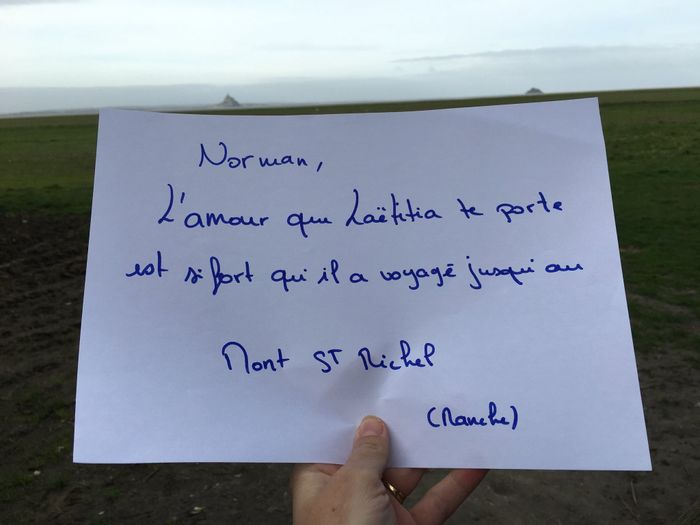 Norman,
L'amour que Laëtitia te porte
est si fort qui il a voyagé jusqui au
Mont ST Michel
(Manche)